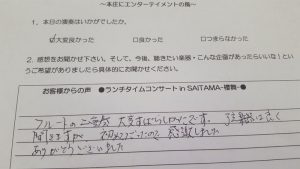 ～本庄にエンターテイメントの輪～
1．本日の演奏はいかがでしたか。
☑大変良かった □良かった □つまらなかった
2．感想をお聞かせ下さい。そして、今後、聴きたい楽器・こんな企画があったらいいな！という
ご希望がありましたら具体的にお聞かせください。
お客様からの声 ●ランチタイムコンサート in SAITAMA-
フルートの三重奏 大変すばらしかったです。
聞きますが 初めてだったので 感激しました
ありがとうございました